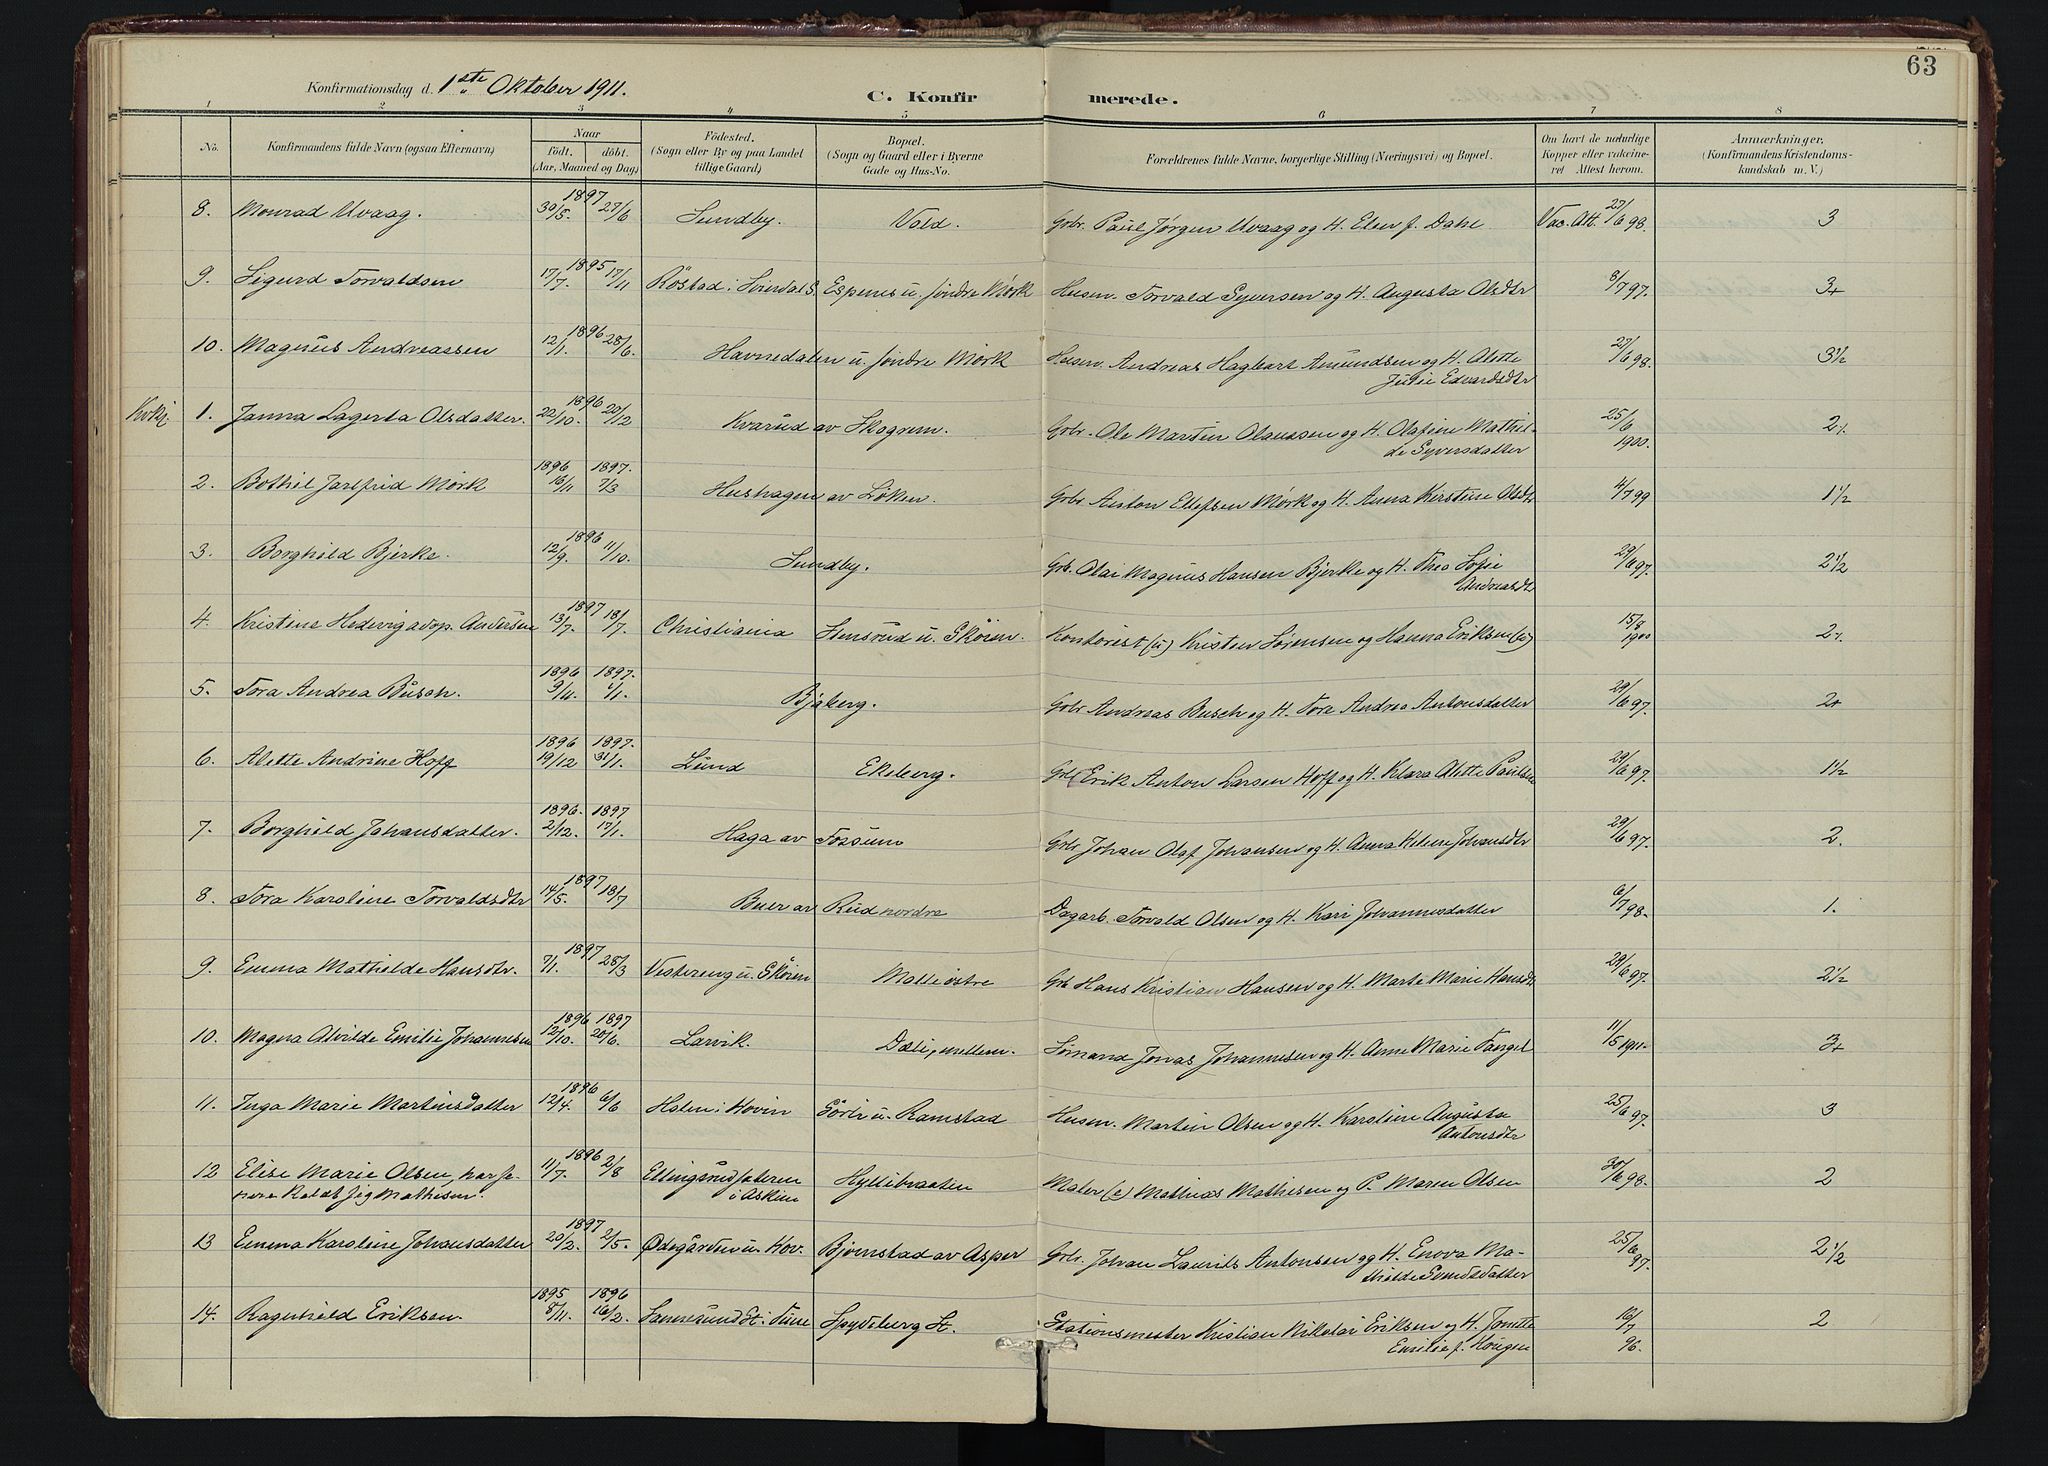 63
Konfirmationsdag d. 1ste Oktober 1911.
C. Konfirmerede.
1 2 3 4 5 6 7 8
No. Konfirmandens fulde Navn (ogsaa Efternavn) Naar født. døbt. (Aar, Maaned og Dag) Födested. (Sogn eller By og paa Landet tillige Gaard) Bopæl. (Sogn og Gaard eller i Byerne Gade og Hus-No. Forældrenes fulde Navne, borgerlige Stilling (Næringsvei) og Bopæl. Om havt de naturlige Kopper eller vakcineret Attest herom. Anmærkninger, (Konfirmandens Kristendomskundskab m. V.)
8. Monrad Uvaag. 1897 30/5. 27/6 Sundby. Vold. Grbr. Paul Jørgen Uvaag og H. Elen f. Dahl Vac. Att. 27/6 98. 3
9. Sigurd Torvaldsen 1895 17/7. 17/11 Röstad i Svindal S. Espenes u. søndre Mörk Husm. Torvald Syversen og H. Augusta Olsdtr 8/7 97. 3+
10. Magnus Andreassen 1896 12/1. 28/6. Havnedalen u. søndre Mörk Husm. Andreas Hagbart Amundsen og H. Alette Julie Edvardsdtr 27/6 98. 3 1/2
1. Janna Lagerta Olsdatter. 1896 22/10. 20/12 Kvarud av Skogrem. Grbr. Ole Martin Olaussen og H. Olafine Mathilde Syversdatter 25/6 1900. 2
2. Bothil Jarlfrid Mörk 1896 16/11 1897. 7/3 Hushagen av Löken. Grbr Anton Ellefsen Mörk og H. Anna Kirstine Olsdtr 4/7 99 1 1/2
3. Borghild Bjerke. 1896 12/9. 11/10. Sundby. Grb. Olai Magnus Hansen Bjerke og H. Thea Sofie Andreasdtr 29/6 97. 2 1/2
4. Kristine Hedevig adop. Andersen 1897 13/7. 18/7. Christiania Stensrud u. Sköien. Kontorist (u) Kristen Sörensen og Hanna Eriksen (u) 15/8 1900 2
5. Tora Andrea Busch. 1896 9/11. 1897. 1/1. Bjaberg. Grbr Andreas Busch og H. Tora Andrea Antonsdatter 29/6 97. 2+
6. Alette Andrine Hoff 1896 19/12 1897. 31/1. Lund Ekeberg. Grb Erik Anton Larsen Hoff og H. Klara Alette Paulsen 29/6 97. 1 1/2
7. Borghild Johansdatter. 1896. 2/12. 1897 17/1. Haga av Fossum Grbr Johan Olaf Johansen og H. Anna Helene Johansdtr 29/6 97. 2.
8. Tora Karoline Torvaldsdtr 1897 14/5. 18/7 Buer av Rud nordre Dagarb. Torvald Olsen og H. Kari Johannesdatter 6/7 98. 1.
9. Emma Mathilde Hansdtr. 1897 7/1. 28/3 Vestereng u. Sköien Molle östre Grb Hans Kristian Hansen og H. Marte Marie Hansdtr 29/6 97. 2 1/2
10. Magna Alvilde Emilie Johannesen 1896 12/10. 1897 20/6. Larvik. Dæli, mellem. Sömand Jonas Johannesen og H. Anne Marie Tangel 11/5 1911. 3+
11. Inga Marie Martinsdatter 1896 12/4. 6/6 Holen i Hovin Sörli u. Ramstad Husm. Martin Olsen og H. Karoline Augusta Antonsdtr 25/6 97. 3
12 Elise Marie Olsen, har senere kaldt sig Mathisen. 1896 11/7. 2/8 Ellingsrudsæteren i Askim Hyllibraaten Maler (e) Mathias Mathisen og P. Maren Olsen 30/6 98. 2
13 Emma Karoline Johansdatter 1897 20/2. 2/5. Ödegården u. Hov. Bjørnstad av Asper Grbr. Johan Laurits Antonsen og H. Enova Mathilde Svendsdatter 25/6 97. 2 1/2
14. Ragnhild Eriksen. 1895 8/11. 1896 16/2. Sannesund St. i Tune Spydeberg St. Stationsmester Kristian Nikolai Eriksen og H. Tomette Emilie f. Hougen 16/7 96. 2